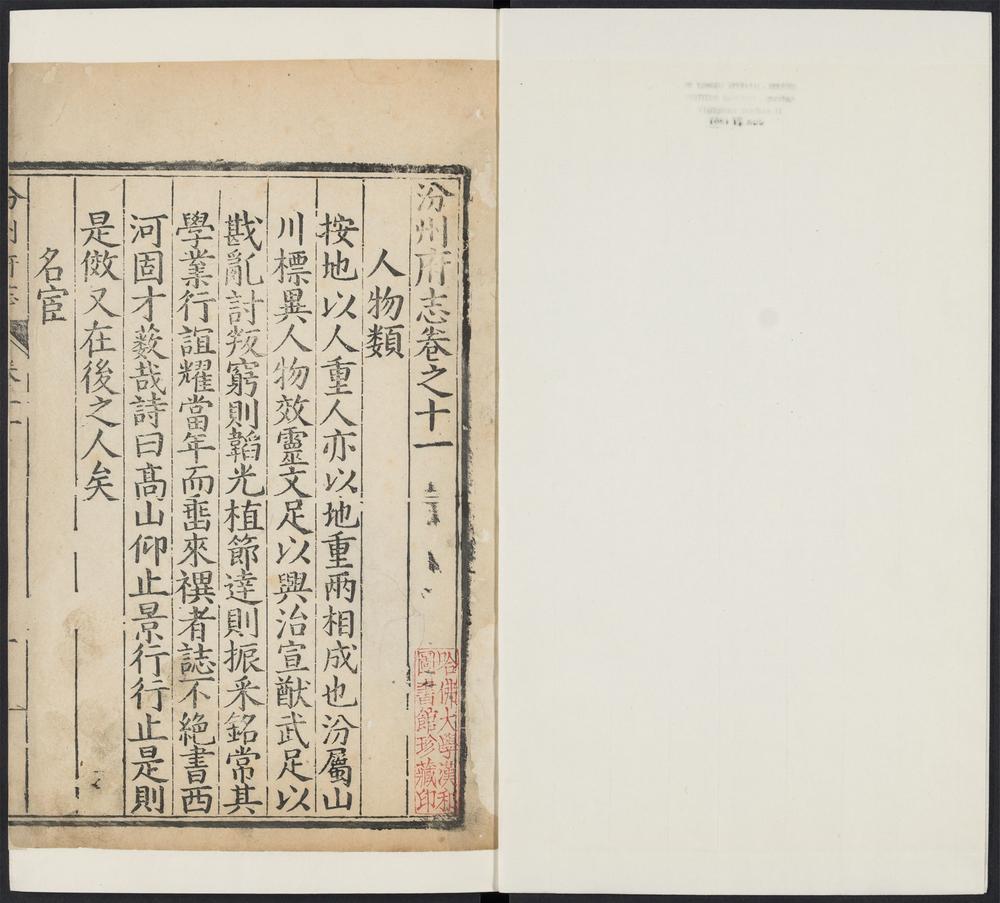 汾州府志卷之十一
人物類
按地以人重人亦以地重兩相成也汾屬山
川標異人物效靈文足以興治宣猷武足以
戡亂討叛窮則韜光植節達則振采銘常其
學業行誼耀當年而畱來禩者誌不絕書西
河固才薮哉詩曰髙山仰止景行行止是則
是傚又在後之人矣
名宦
哈佛大學漢和
圖書館珍藏印